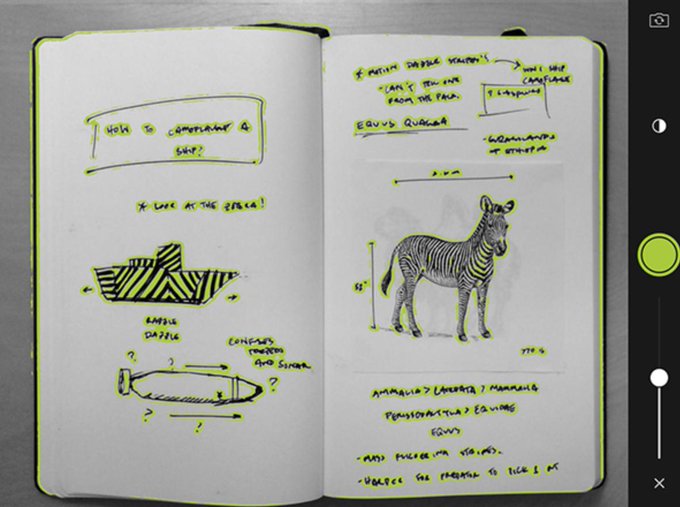 HOW TO CAMOFLAUGE A
SHIP?
* LOOK AT THE ZEBRA!
RAZZLE
DAZZLE
CONFUSES
TORPEDO
AND SONAR
? ? ?
? ?
* MOTION DAZZLE STRIPES
WW1 SHIP
CAMOFLAGE
- CAN'T TELL ONE
FROM THE PACK.
EQUUS QUAGGA
- GRASSLANDS
OF ETHIOPIA
ANIMALIA > CHORDATA > MAMMALIA
PERISSODACTYLA > EQUIDAE
EQUUS
STRIPES.
- HARDER FOR PREDATOR TO PICK 1 OUT